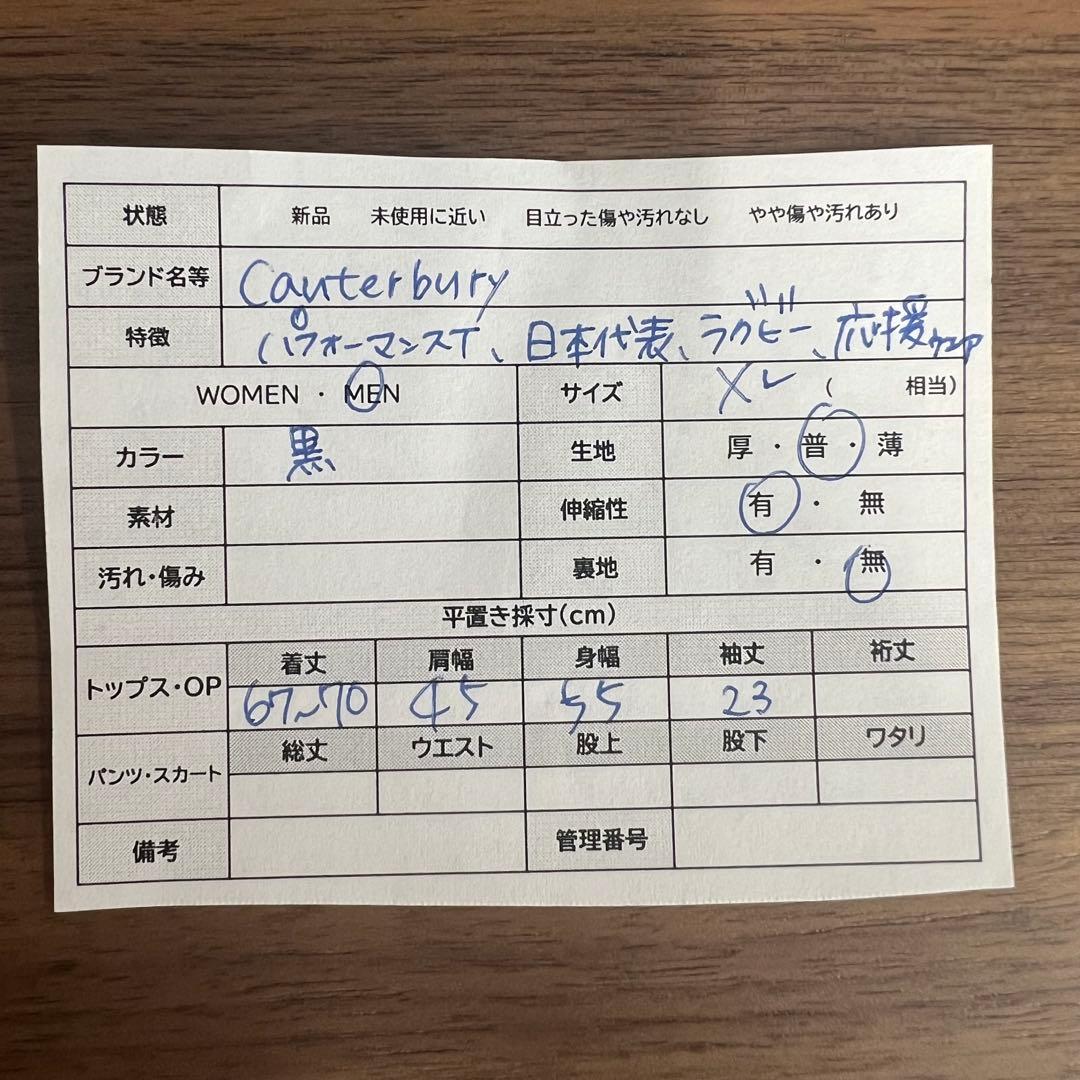 状態 新品 未使用に近い 目立った傷や汚れなし やや傷や汚れあり
ブランド名等 Canterbury
特徴 パフォーマンスT、日本代表、ラグビー、応援ウェア
WOMEN ・ MEN サイズ XL ( 相当)
カラー 黒 生地 厚 ・ 普 ・ 薄
素材 伸縮性 有 ・ 無
汚れ・傷み 裏地 有 ・ 無
平置き採寸(cm)
トップス・OP 着丈 肩幅 身幅 袖丈 裄丈
67~70 45 55 23
パンツ・スカート 総丈 ウエスト 股上 股下 ワタリ
備考 管理番号